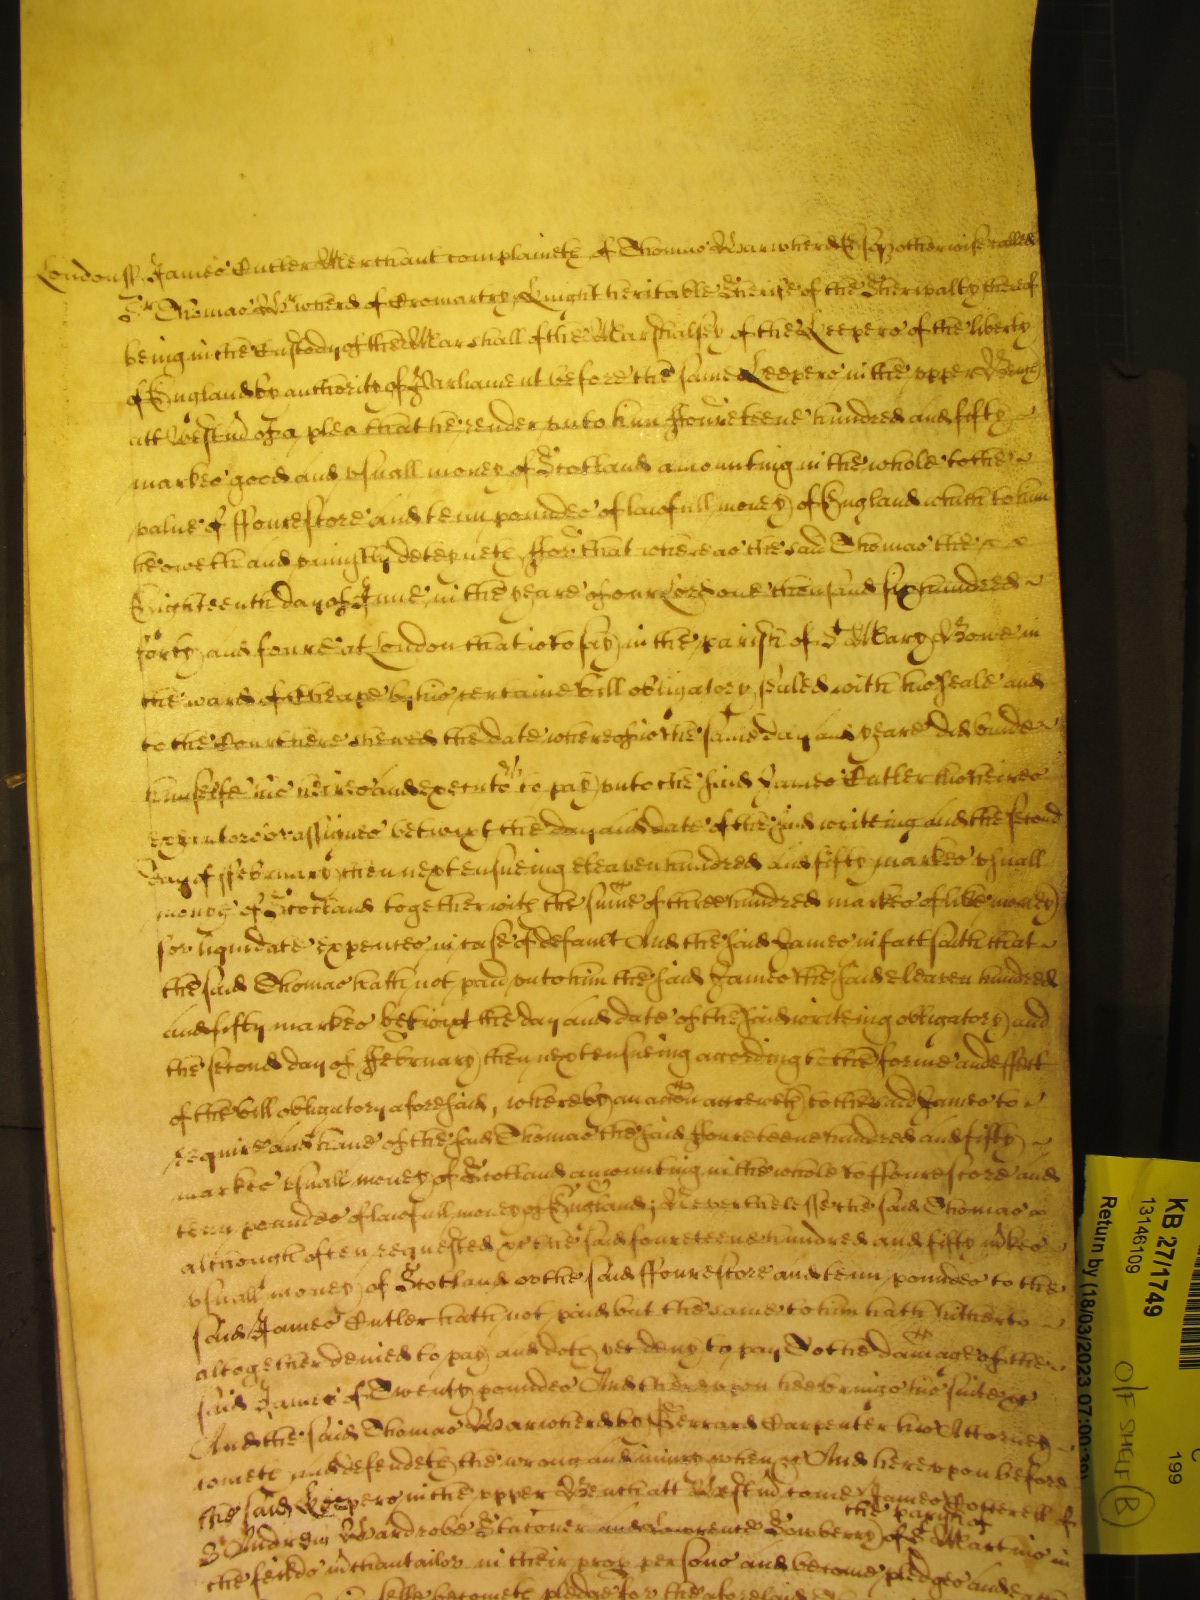 London ss James Cutler Merchant complaineth of Thomas otherwise called
Sr Thomas of Cromartey Knight heritable Sherife of the Sherivalty thereof
being in the Custody of the Marshall of the Marshalsey of the Keepers of the liberty
of England by authority of Parliament before the same Keepers in the upper Bench
att Westmr of a plea that he render unto him ffoureteene hundred and fifty
markes good and usuall money of Scotland amounting in the whole to the
value of ffourescore and tenn poundes of lawfull money of England which to him
he oweth and uniustly deteyneth ffor that whereas the said Thomas the
Eighteenth day of June in the yeare of our Lord one thousand six hundred
forty and foure at London that is to say in the parish of St Mary Bowe in
the ward of Cheape by his certaine bill obligatory sealed with his seale and
to the Court here shewed the date whereof is the same day and yeare did binde
himselfe his heires and executors to pay unto the said James Cutler his heires
executors or assignes betwixt the day and date of the said writeing and the second
day of ffebruary then next ensueing eleaven hundred and fifty markes usuall
money of Scotland together with the sume of three hundred markes of like money
for liquidate expences in case of default And the said James in fact saith that
the said Thomas hath not paid unto him the said James the said eleaven hundred
and fifty markes betwixt the day and date of the said writeing obligatory and
the second day of ffebruary then next ensueing according to the forme and effect
of the bill obligatory aforesaid, whereby an accon accreweth to the said James to
require and have of the said Thomas the said ffoureteene hundred and fifty
markes usuall money of Scotland amounting in the whole to ffourescore and
tenn poundes of lawfull money of England; Neverthelesse the said Thomas
although often requested the said foureteene hundred and fifty mkes
usuall money of Scotland or the said ffourescore and tenn poundes to the
said James Cutler hath not paid but the same to him hath hitherto
altogether denied to pay and doth yet deny to pay To the damage of the
said James of Twenty poundes And thereupon hee brings his suite &c
And the said Thomas by Gerrard Carpenter his Attorney
cometh and defendeth the wrong and iniury when &c And hereupon before
the said Keepers in the upper Bench att Westmr come James of
the parish of
St Andrew Wardrobe Stationer and Lawrence Sowberry of St Martins in
the feilds in their prop persons and become pledges and
becometh pledge for the aforesaid
KB 27/1749
13146109
Return by (18/03/2023 07:00:39)
OFF SHELF B
C
199